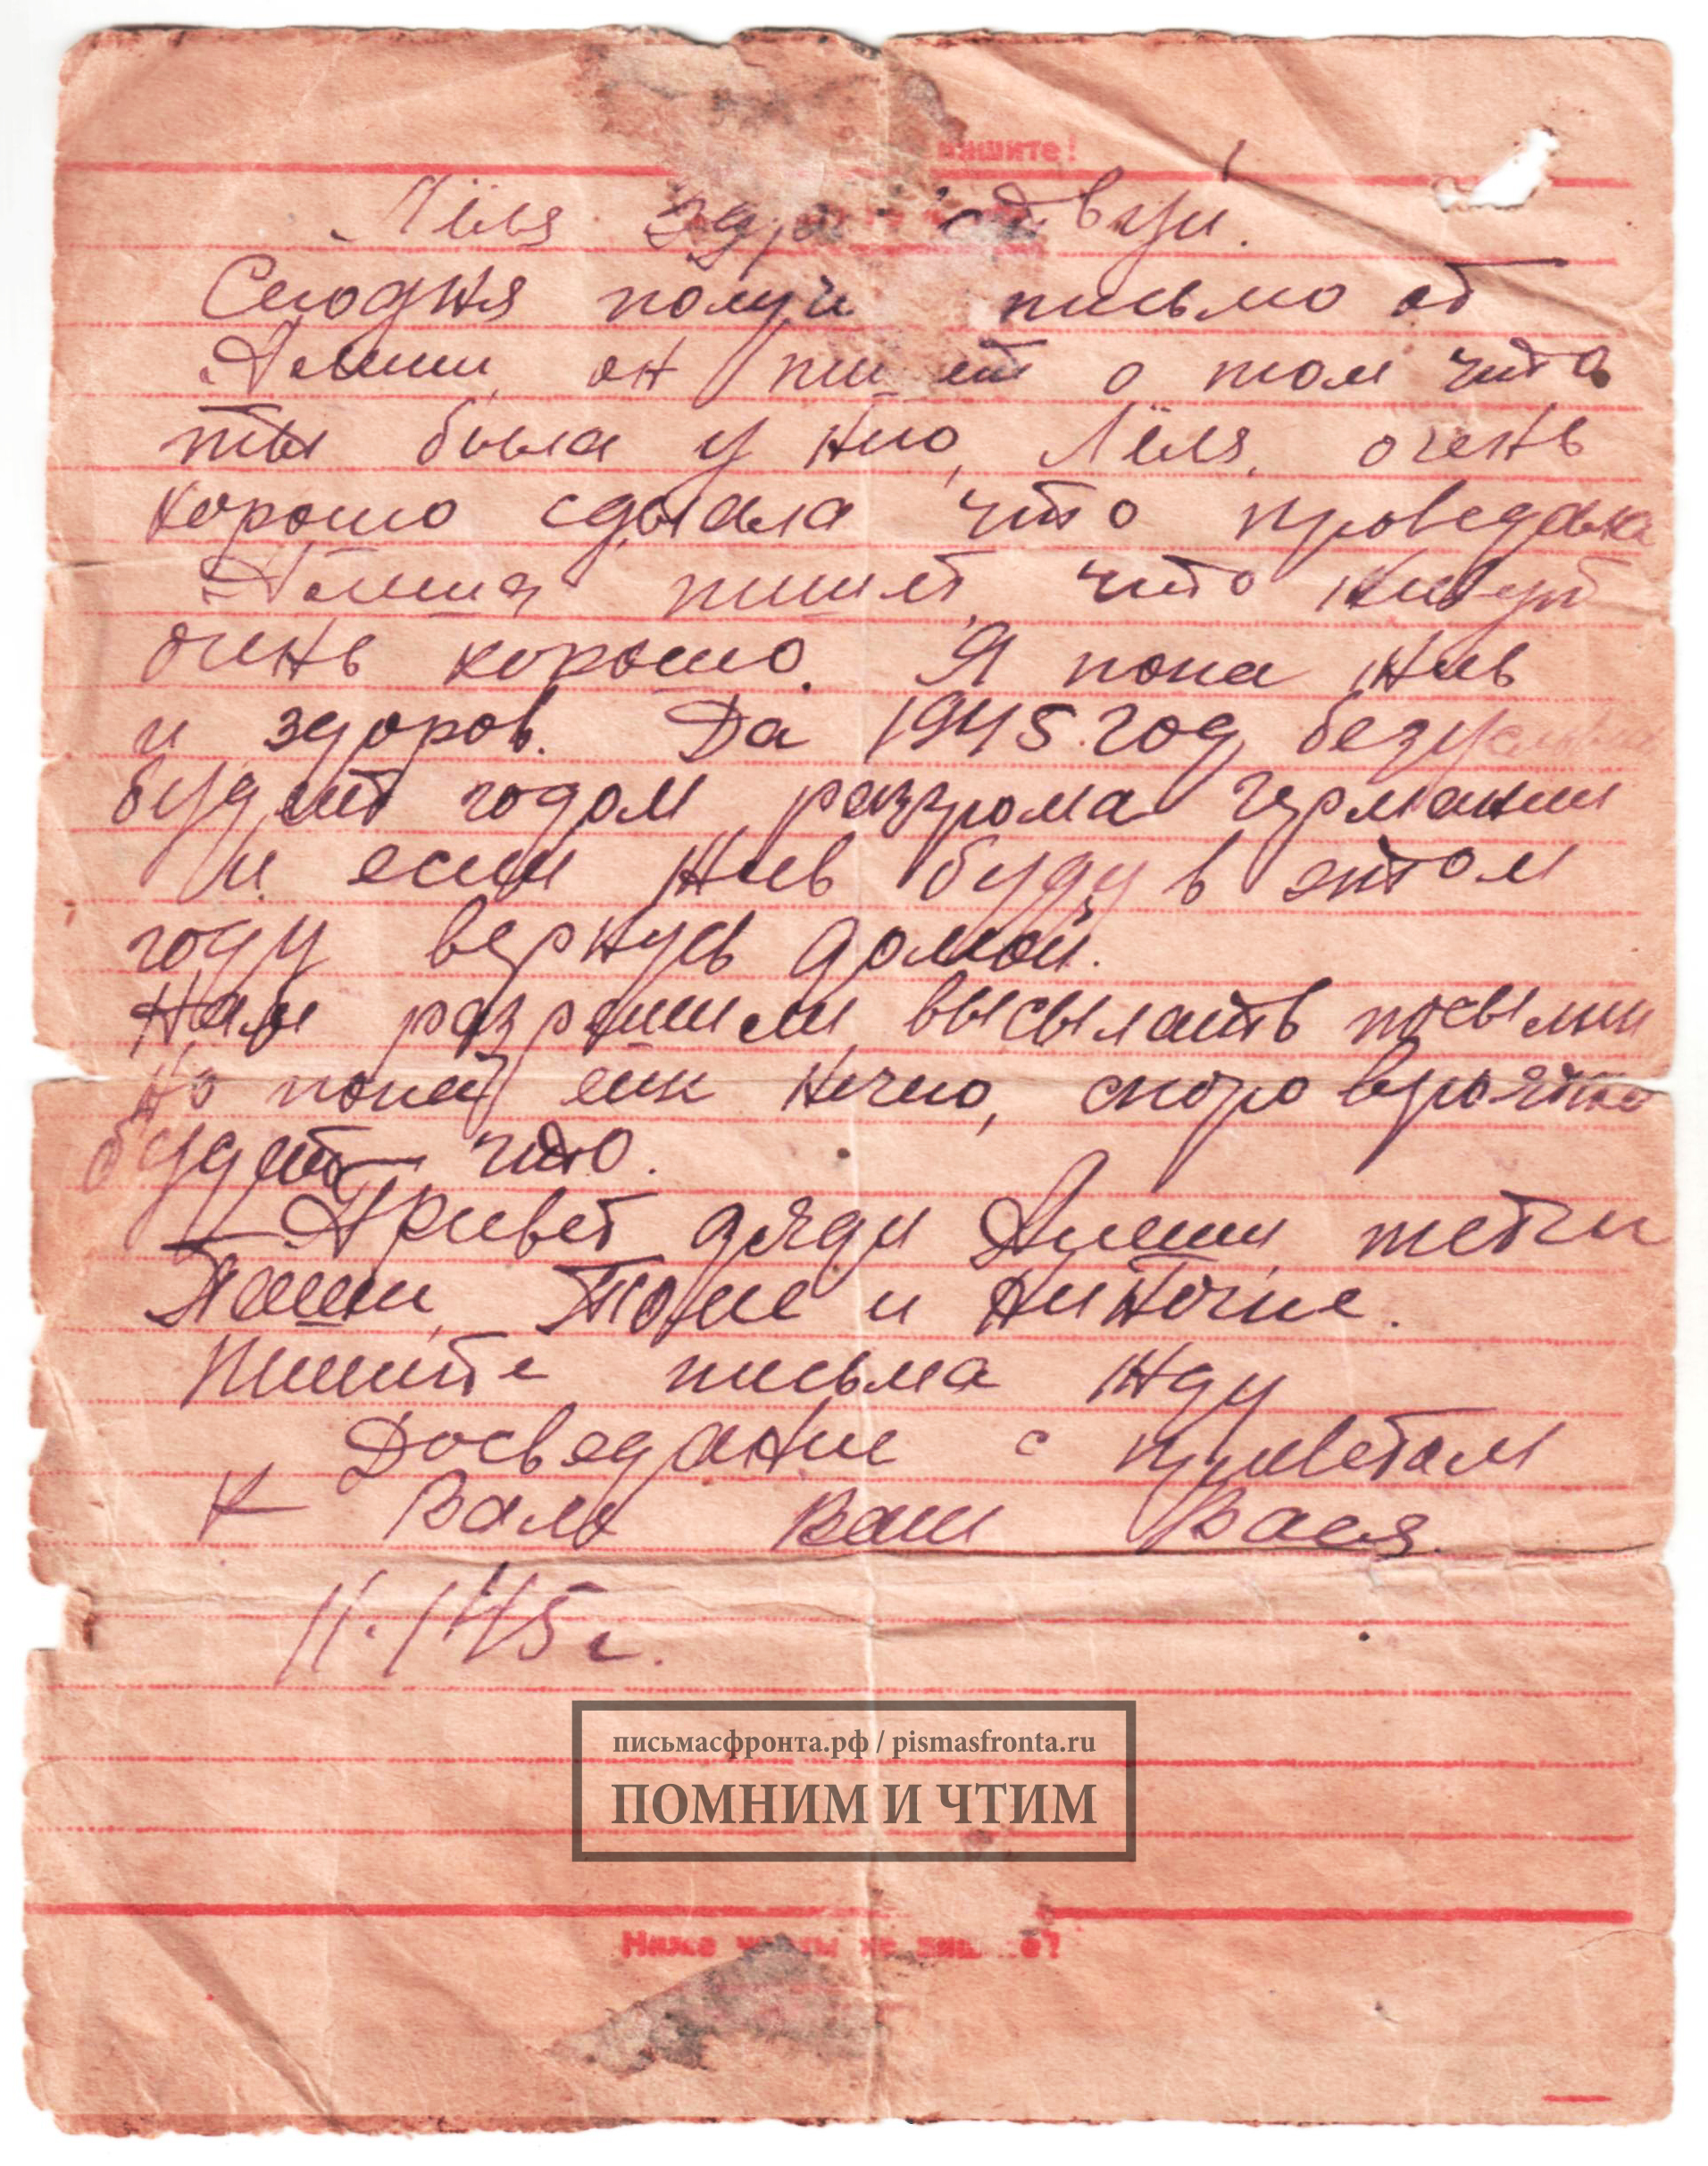 пишите!
Лёля здра ствуй.
Сегодня получи письмо от
он пишет о том что
ты была у него, Лёля, очень
хорошо сделала что проведала
пишет, что живут
очень хорошо. Я пока жив
и здоров. Да 1945 год безусл
будет годом разгрома Германии
и если жив буду в этом
году вернусь домой.
Нам разрешили высылать посылки
но пока еще нечего, скоро
будет что.
Привет дяди тетки
Паши, Тоне и Ниночке.
Пишите письма жду
Досведание с приветом
к Вам Ваш Вася.
11.1 45 г.
письмасфронта.рф / pismasfronta.ru
ПОМНИМ И ЧТИМ
Ниже че ты не пиш те!